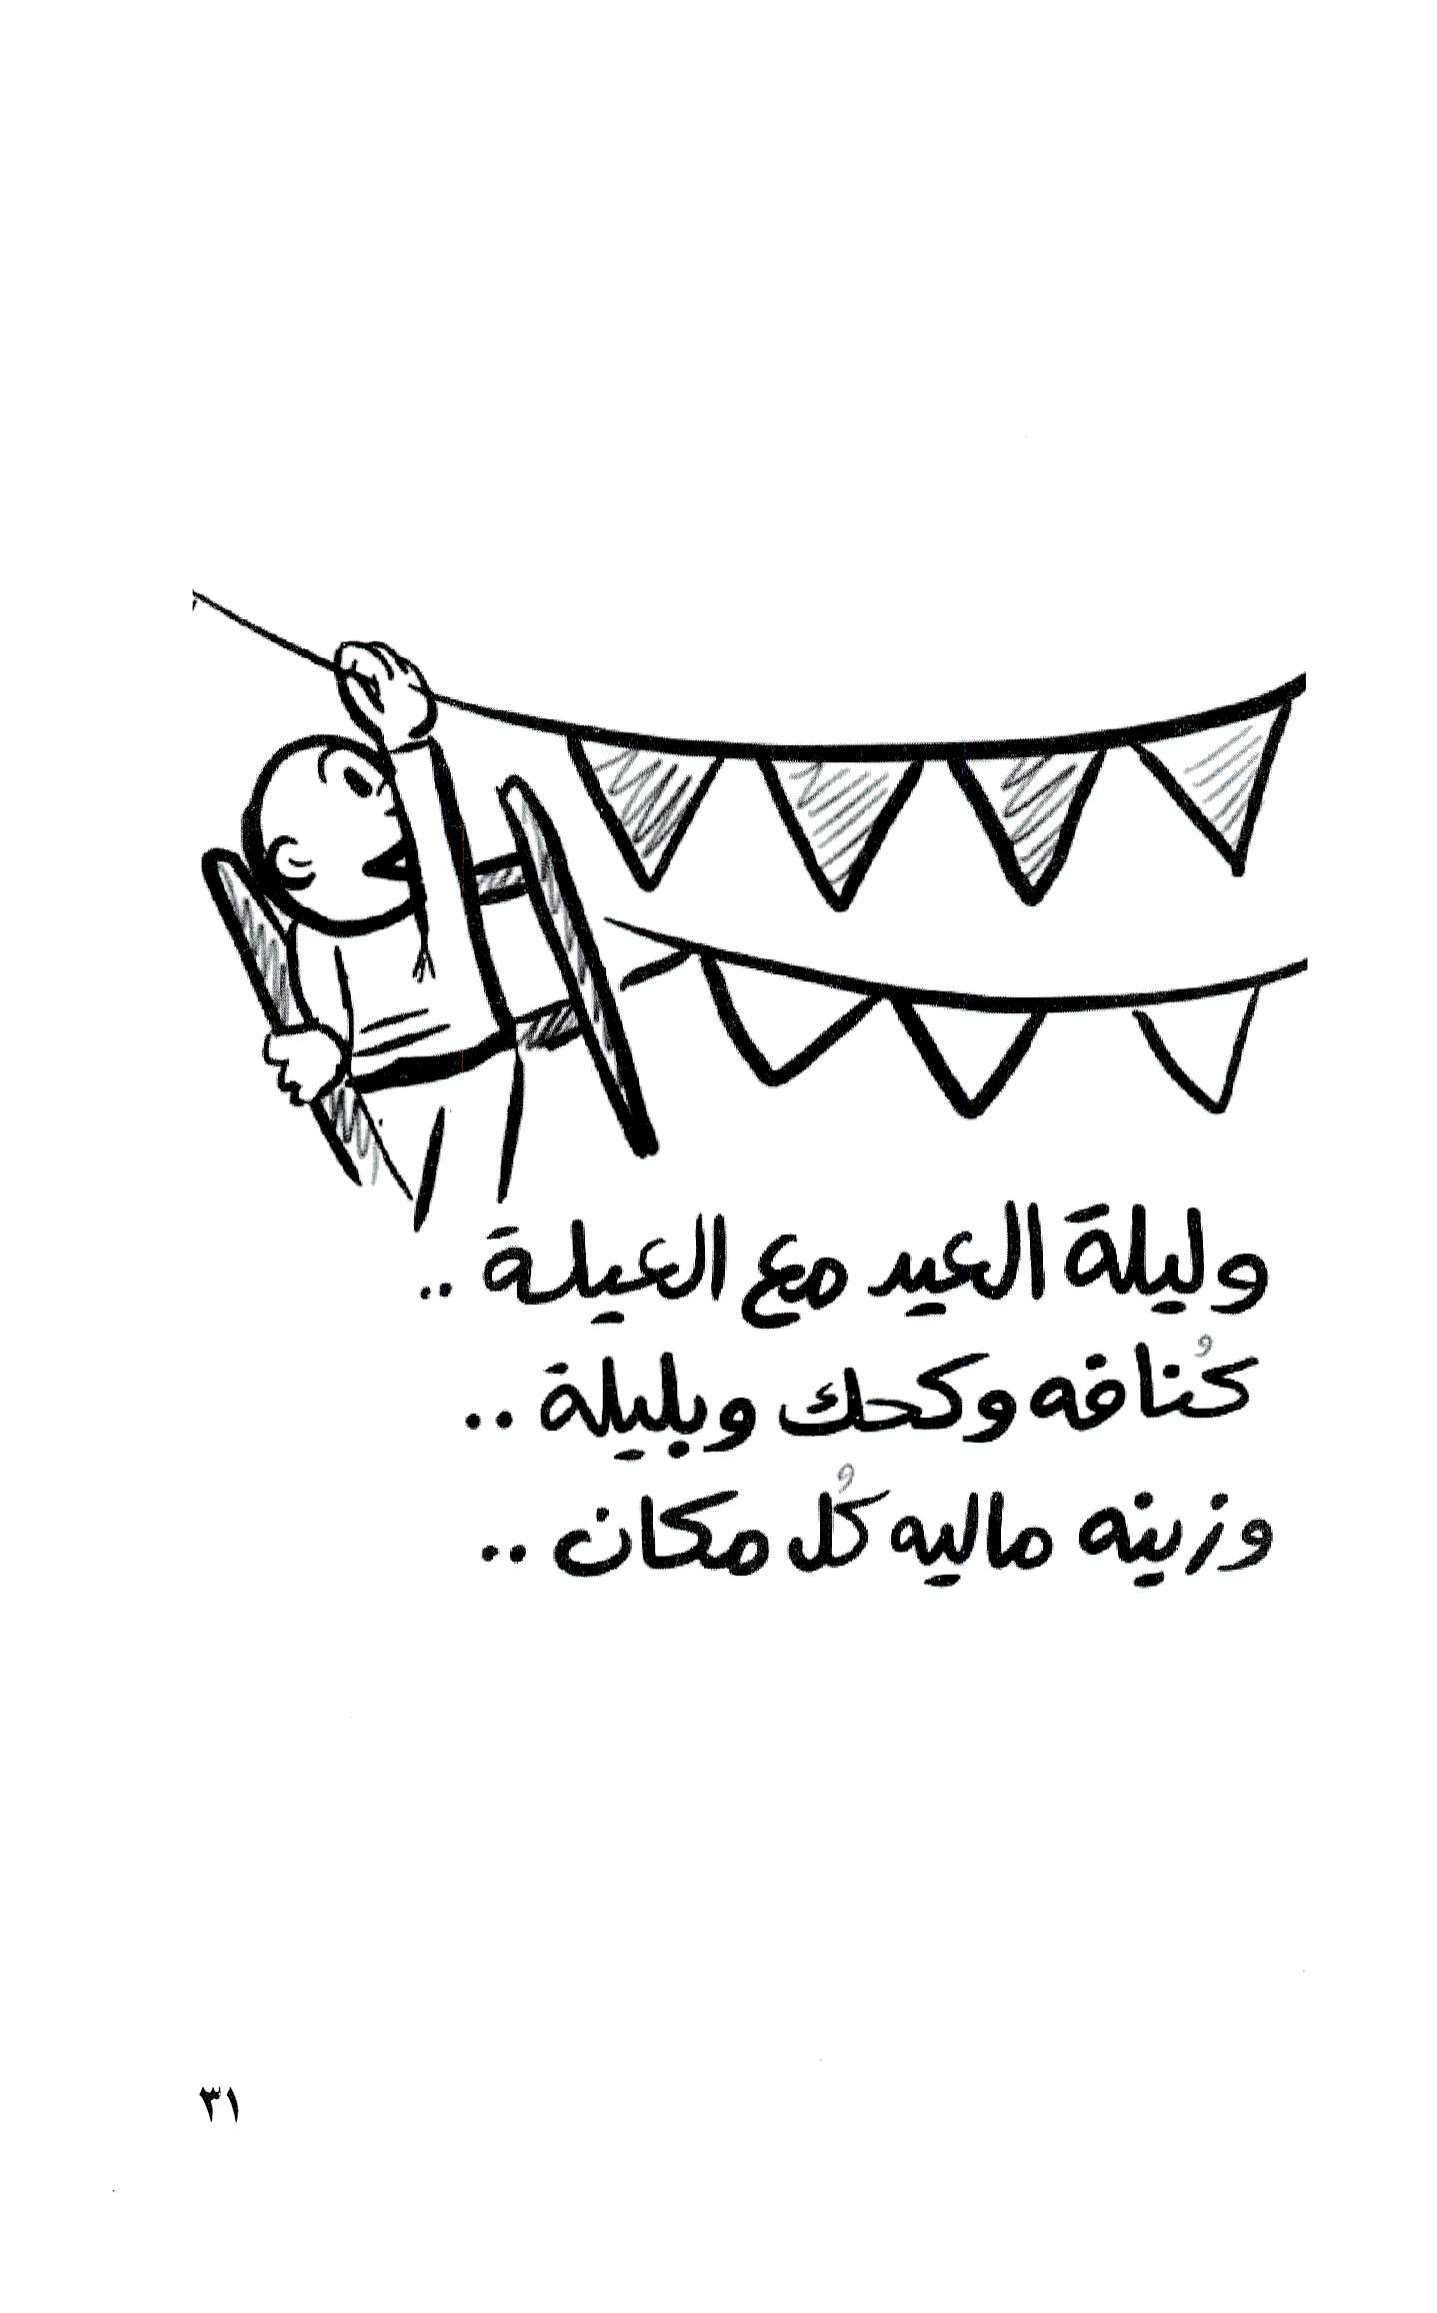 وليلة العيد مع العيلة ..
كُنافه وكحك وبليلة ..
وزينه ماليه كُل مكان ..
٣١